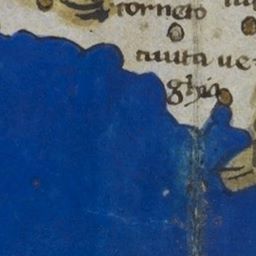 corneto
ciuita ue=
ghia